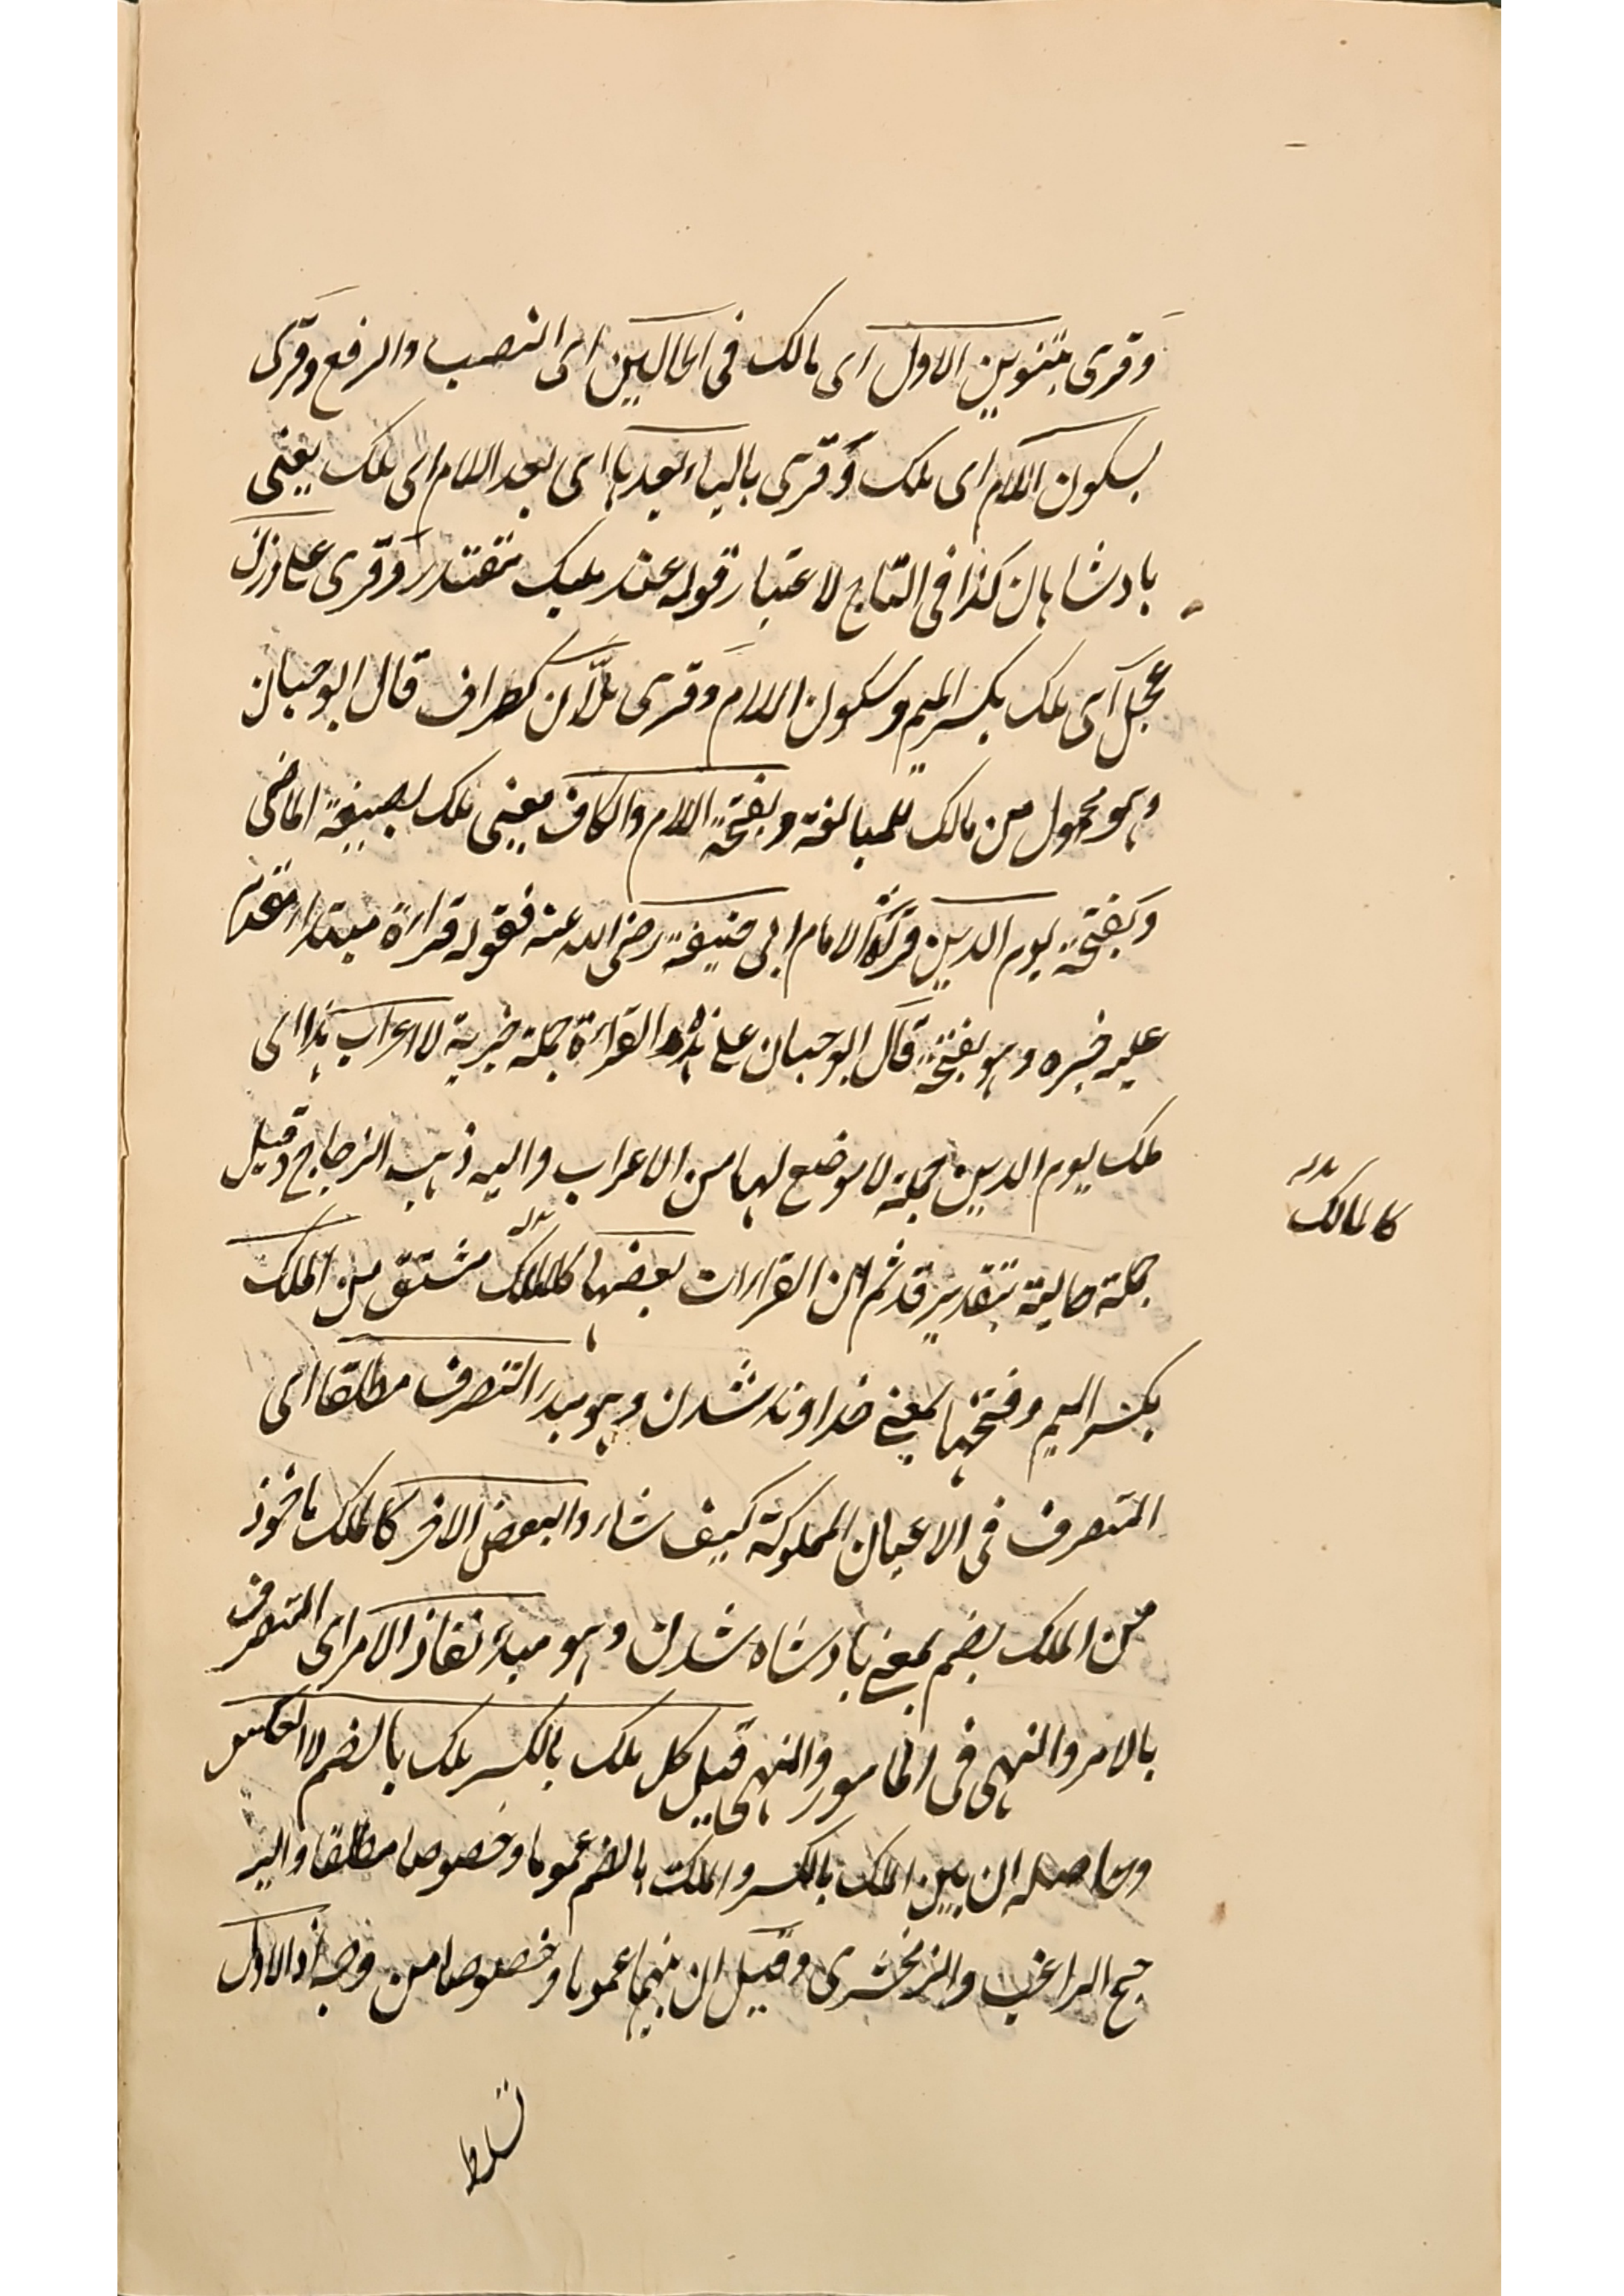 وقرى بتنوين الاول اى مالك فى الحالين اى النصب والرفع وقرى
بسكون اللام اى ملك وقرى بالياء بعدها اى بعد اللام اى مليك يعنى
بادشاهان كذا فى التاج لاعتبار قوله عند مليك مقتدر وقرى على وزن
عجل اى ملك بكسر الميم وسكون اللام وقرى ملاّك كطراف قال ابو حبان
وهو محمول من مالك للمبالغة وبفتحة اللام والكاف يعنى ملك بصيغة الماضى
وبفتحة يوم الدين قرأة الامام ابى حنيفة رضى الله عنه فقوله قراءة مبتداء مقدم
عليه خبره وهو بفتحة قال ابو حبان على هذه القراءة جملة خبرية لا اعراب لها اى
ملك يوم الدين جملة لا موضع لها من الاعراب واليه ذهب الزجاج وقيل
جملة حالية بتقدير قد ثم ان القراءات بعضها كالمالك مشتق من الملك
كالمالك بدله
بكسر الميم وفتحها بمعنى خداوند شدن وهو مبدء التصرف مطلقا اى
التصرف فى الاعيان المملوكة كيف شاء والبعض الاخر كالملك ماخوذ
من الملك بضم بمعنى بادشاه شدن وهو مبدء نفاذ الامر اى التصرف
بالامر والنهى فى المامور والمنهى قيل كل ملك بالكسر ملك بالضم لا العكس
وحاصله ان بين الملك بالكسر والملك بالضم عموما وخصوصا مطلقا واليه
جنح الراغب والزمخشرى وقيل ان بينهما عموما وخصوصا من وجه اذ الاول
تسلط